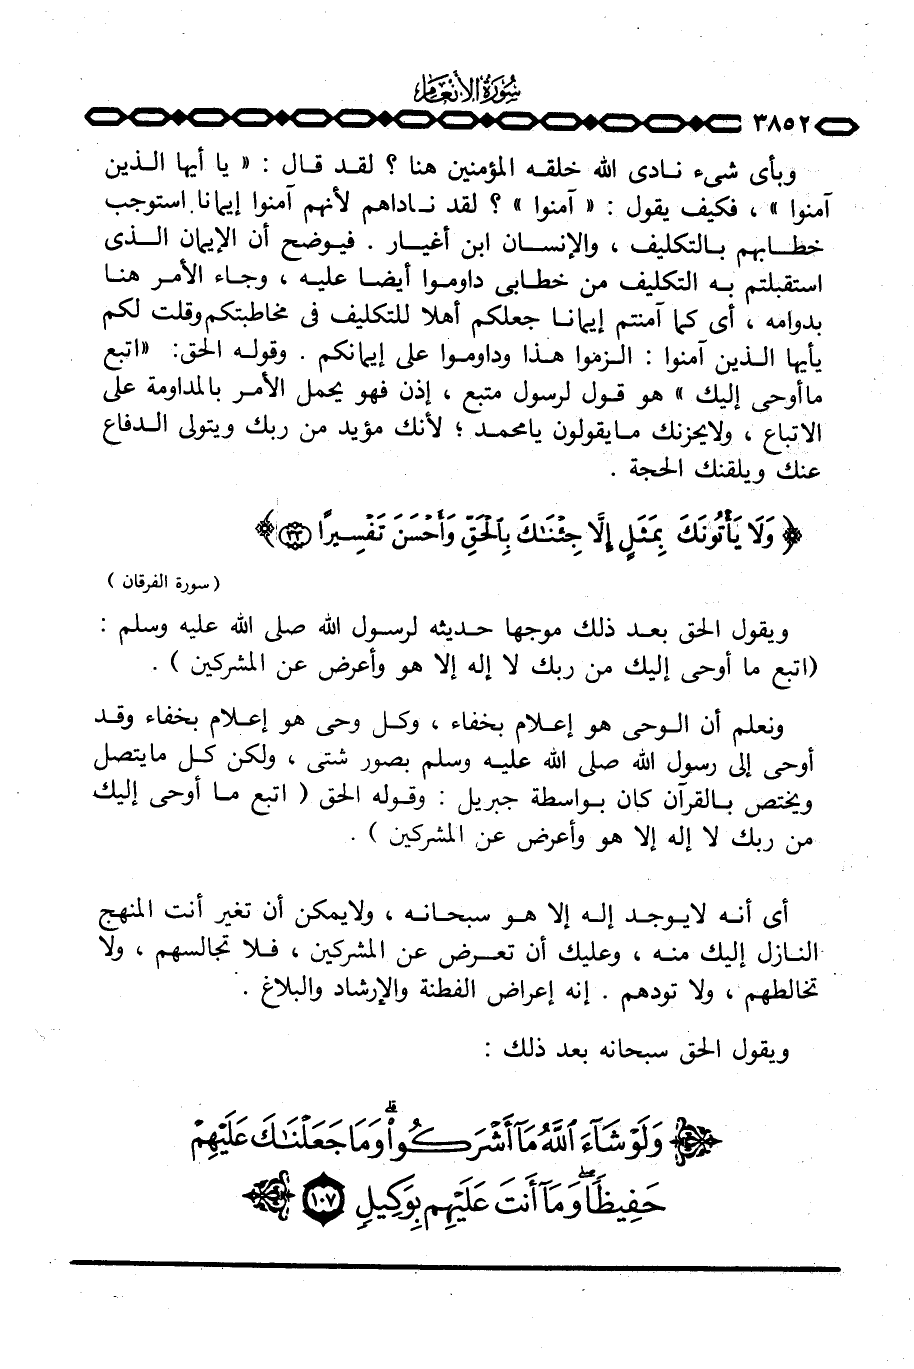 سورة الأنعام
٣٨٥٢
وبأى شىء نادى الله خلقه المؤمنين هنا ؟ لقد قال : « يا أيها الذين
آمنوا » ، فكيف يقول : « آمنوا » ؟ لقد ناداهم لأنهم آمنوا إيمانا استوجب
خطابهم بالتكليف ، والإنسان ابن أغيار . فيوضح أن الإيمان الذى
استقبلتم به التكليف من خطابى داوموا أيضا عليه ، وجاء الأمر هنا
بدوامه ، أى كما آمنتم إيمانا جعلكم أهلا للتكليف فى مخاطبتكم وقلت لكم
يأيها الذين آمنوا : الزموا هذا وداوموا على إيمانكم . وقوله الحق: «اتبع
ماأوحى إليك » هو قول لرسول متبع ، إذن فهو يحمل الأمر بالمداومة على
الاتباع ، ولايحزنك مايقولون يامحمد ؛ لأنك مؤيد من ربك ويتولى الدفاع
عنك ويلقنك الحجة .
﴿ وَلَا يَأْتُونَكَ بِمَثَلٍ إِلَّا جِئْنَٰكَ بِالْحَقِّ وَأَحْسَنَ تَفْسِيرًا ٣٣ ﴾
( سورة الفرقان )
ويقول الحق بعد ذلك موجها حديثه لرسول الله صلى الله عليه وسلم :
(اتبع ما أوحى إليك من ربك لا إله إلا هو وأعرض عن المشركين ) .
ونعلم أن الوحى هو إعلام بخفاء ، وكل وحى هو إعلام بخفاء وقد
أوحى إلى رسول الله صلى الله عليه وسلم بصور شتى ، ولكن كل مايتصل
ويختص بالقرآن كان بواسطة جبريل : وقوله الحق ( اتبع ما أوحى إليك
من ربك لا إله إلا هو وأعرض عن المشركين ) .
أى أنه لايوجد إله إلا هو سبحانه ، ولايمكن أن تغير أنت المنهج
النازل إليك منه ، وعليك أن تعرض عن المشركين ، فلا تجالسهم ، ولا
تخالطهم ، ولا تودهم . إنه إعراض الفطنة والإرشاد والبلاغ .
ويقول الحق سبحانه بعد ذلك :
﴿ وَلَوْ شَآءَ ٱللَّهُ مَآ أَشْرَكُوا۟ ۗ وَمَا جَعَلْنَٰكَ عَلَيْهِمْ
حَفِيظًا ۖ وَمَآ أَنتَ عَلَيْهِم بِوَكِيلٍ ١٠٧ ﴾